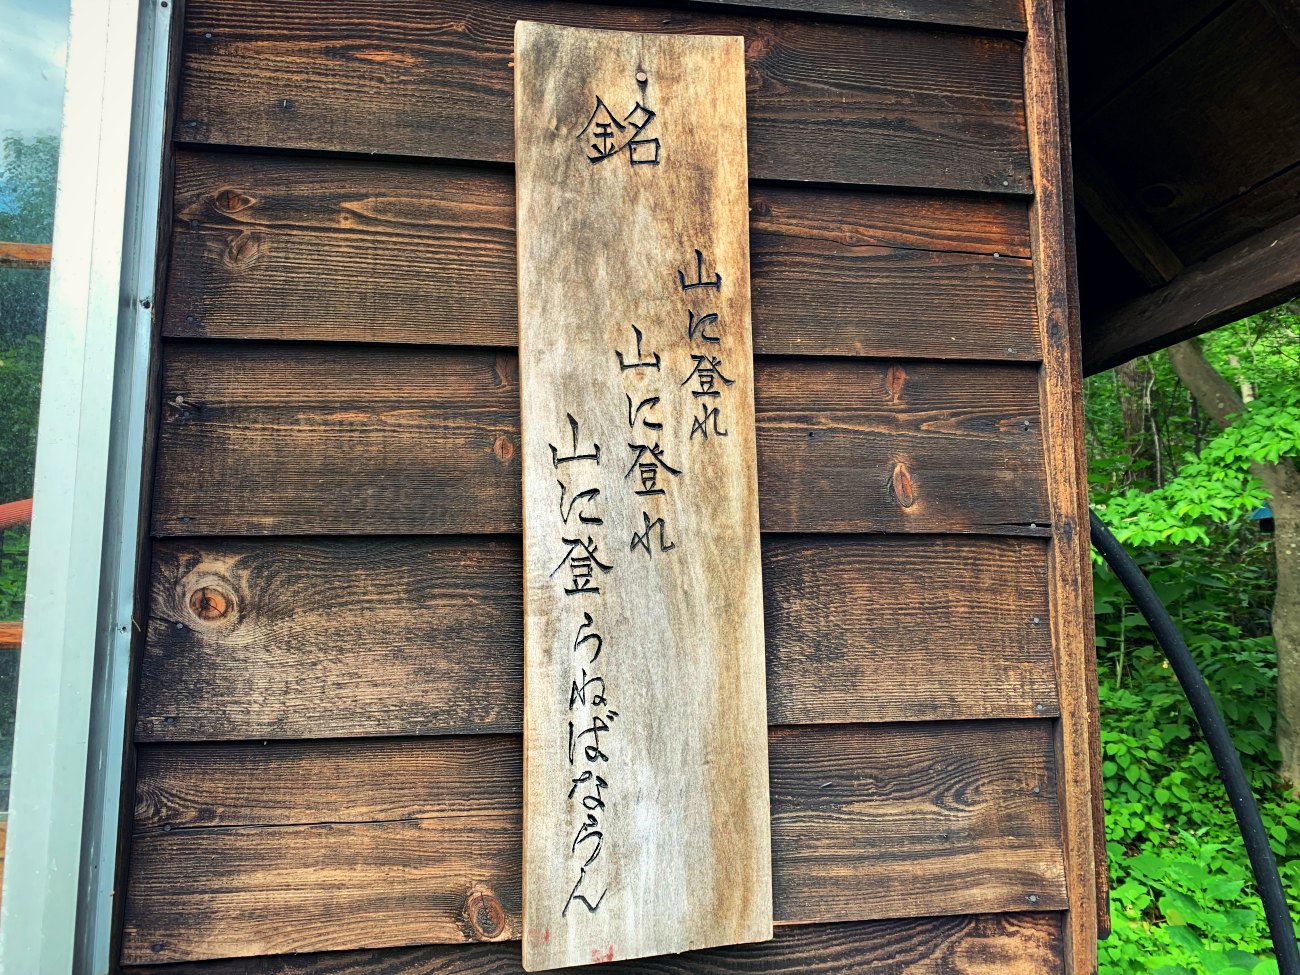 銘
山に登れ
山に登れ
山に登らねばならん